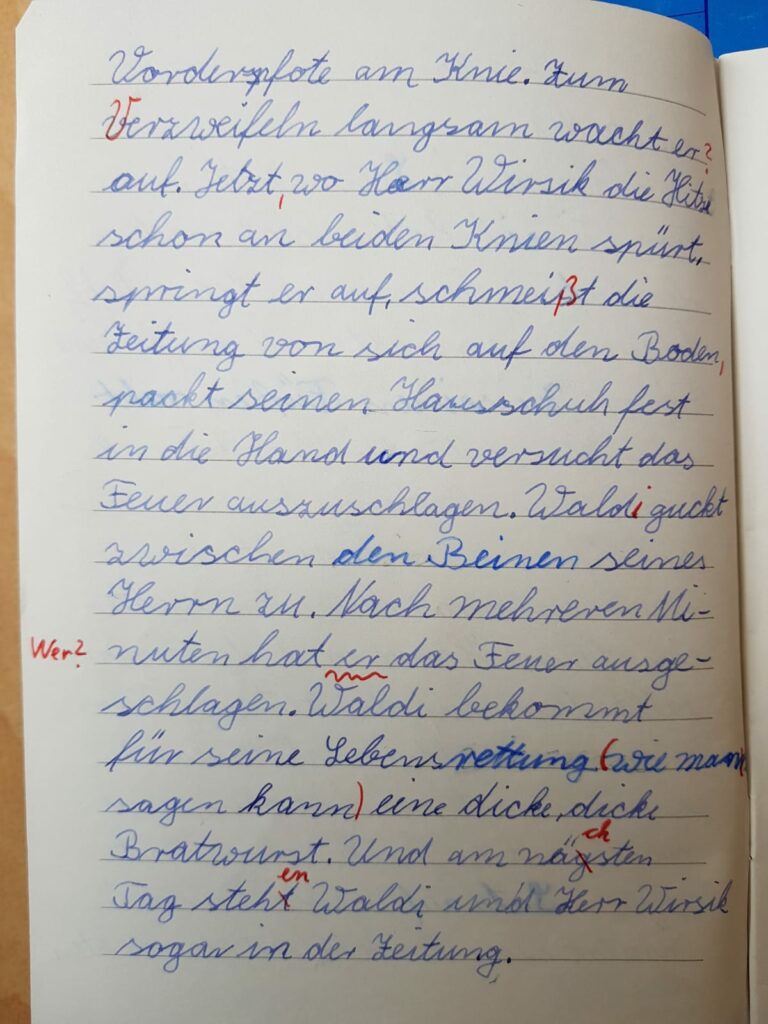 Vorderpfote am Knie. Zum
Verzweifeln langsam wacht er?
auf. Jetzt, wo Herr Wirsik die Hitze
schon an beiden Knien spürt,
springt er auf, schmeißt die
Zeitung von sich auf den Boden,
packt seinen Hausschuh fest
in die Hand und versucht das
Feuer auszuschlagen. Waldi guckt
zwischen den Beinen seines
Herrn zu. Nach mehreren Mi-
Wer? nuten hat er das Feuer ausge-
schlagen. Waldi bekommt
für seine Lebensrettung (wie mann
sagen kann) eine dicke, dicke
ch
Bratwurst. Und am nägsten
en
Tag steht Waldi und Herr Wirsik
sogar in der Zeitung.